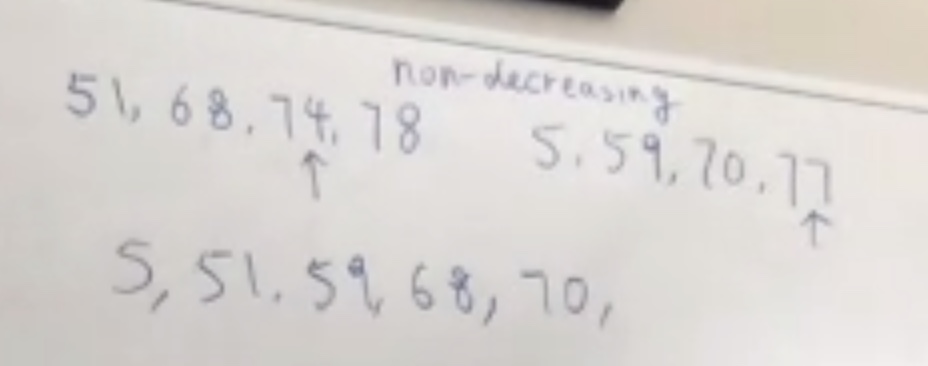 non-decreasing
51, 68, 74, 78
5, 59, 70, 77
↑ ↑
5, 51, 59, 68, 70,